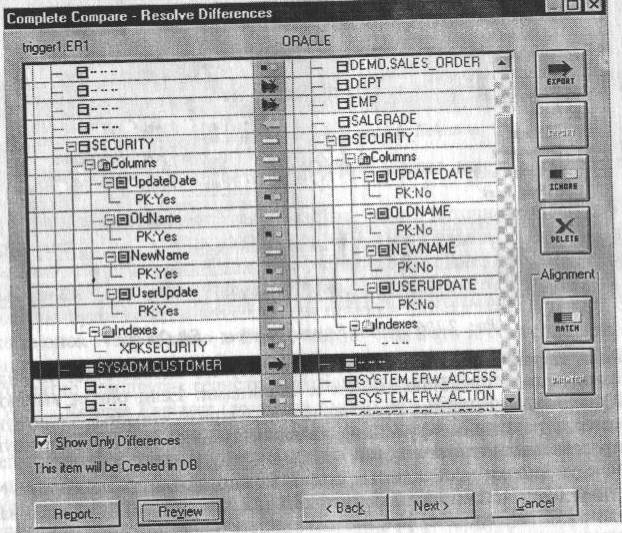 Complete Compare - Resolve Differences
trigger1.ER1 ORACLE
- - - - DEMO.SALES_ORDER
- - - - DEPT
- - - - EMP
- - - - SALGRADE
SECURITY SECURITY
Columns Columns
UpdateDate UPDATEDATE
PK:Yes PK:No
OldName OLDNAME
PK:Yes PK:No
NewName NEWNAME
PK:Yes PK:No
UserUpdate USERUPDATE
PK:Yes PK:No
Indexes Indexes
XPKSECURITY - - - -
SYSADM.CUSTOMER - - - -
- - - - SYSTEM.ERW_ACCESS
- - - - SYSTEM.ERW_ACTION
EXPORT
IMPORT
IGNORE
DELETE
Alignment
MATCH
UNMATCH
Show Only Differences
This item will be Created in DB
Report... Preview < Back Next > Cancel